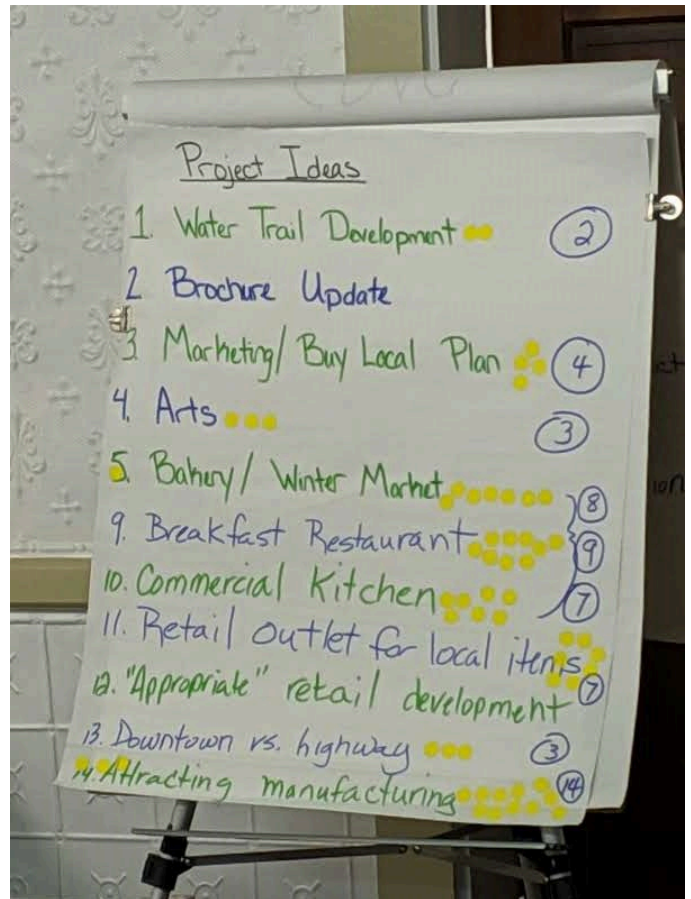 Project Ideas
1. Water Trail Development 2
2 Brochure Update
3. Marketing/ Buy Local Plan 4
4. Arts 3
5. Bakery/ Winter Market 8
9. Breakfast Restaurant 9
10. Commercial Kitchen 7
11. Retail outlet for local items
12. "Appropriate" retail development 7
13. Downtown vs. highway 3
14. Attracting manufacturing 14